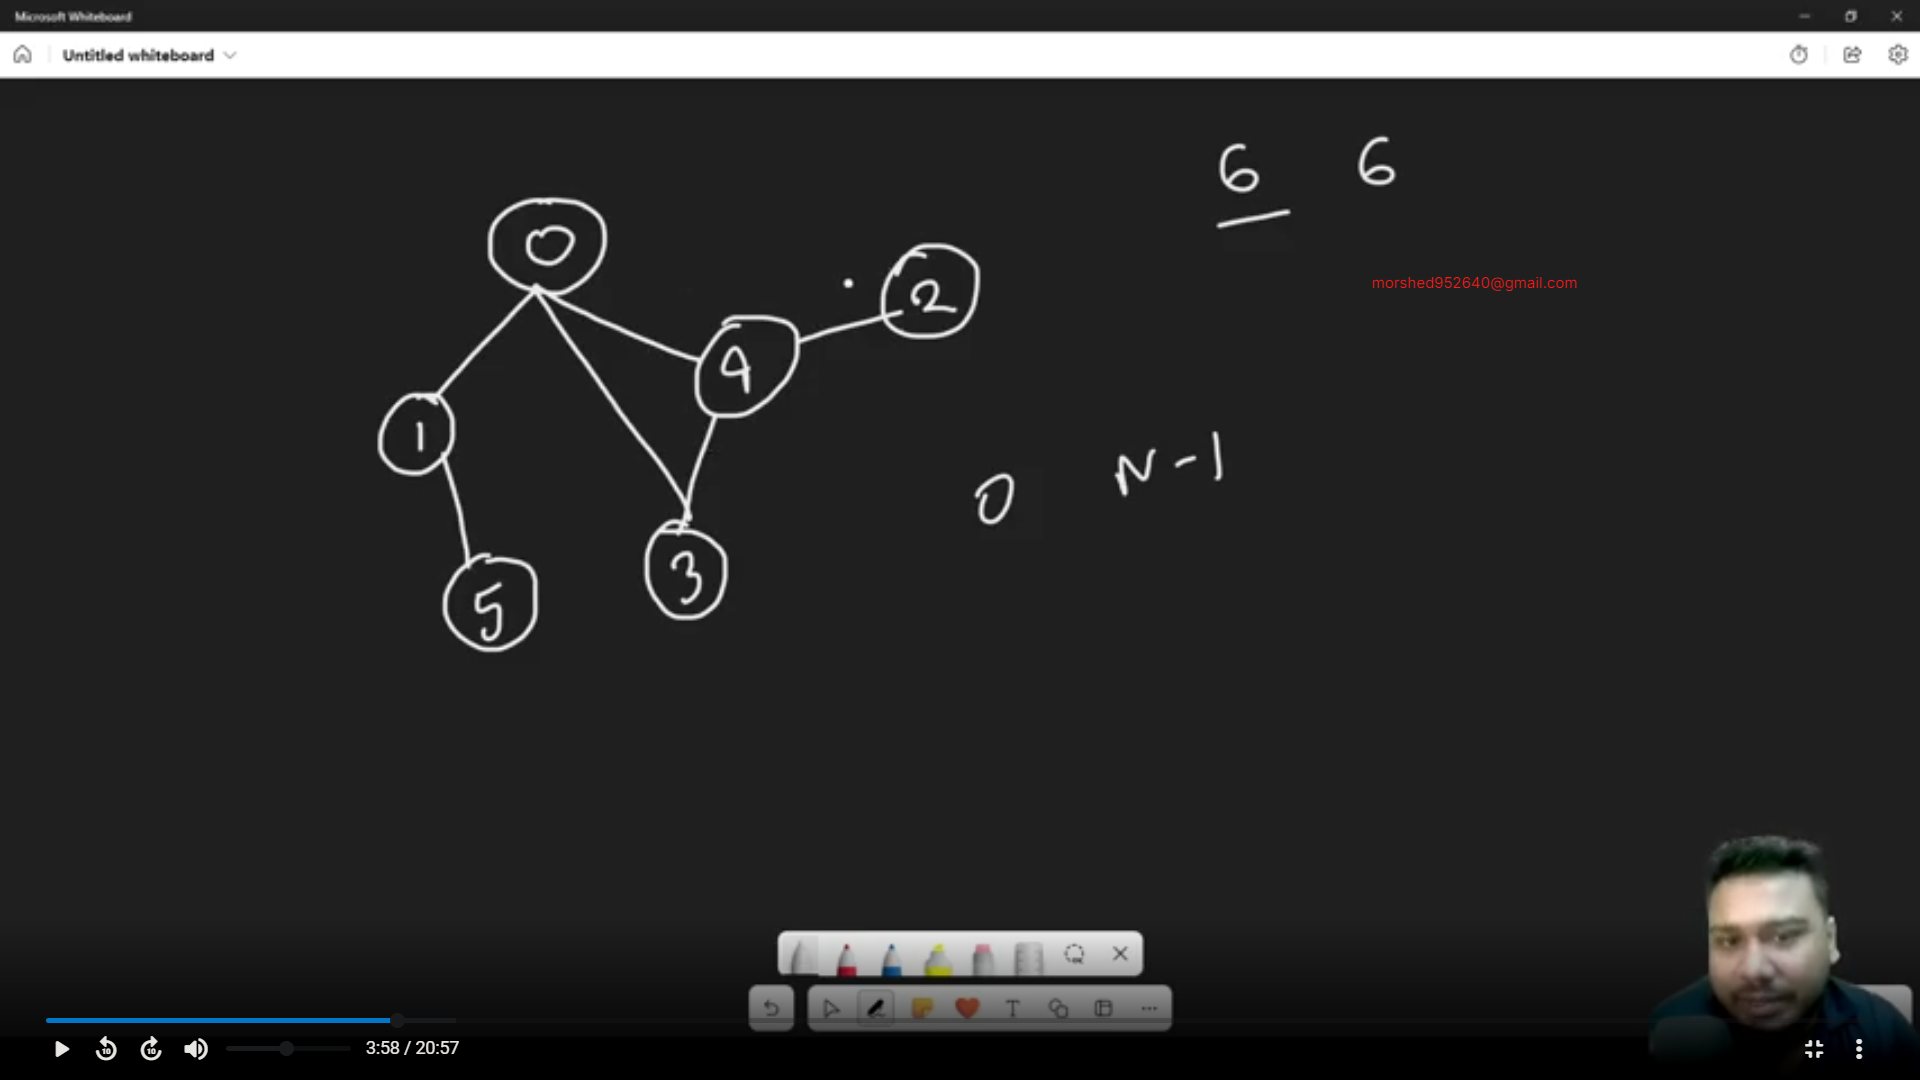 Microsoft Whiteboard
Untitled whiteboard
6 6
morshed952640@gmail.com
0
2
4
1
0 N-1
3
5
10 10 3:58 / 20:57